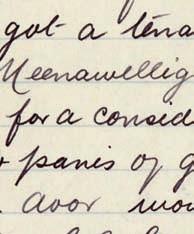 got a tena
Meenawellig
for a consid
panes of g
door wou